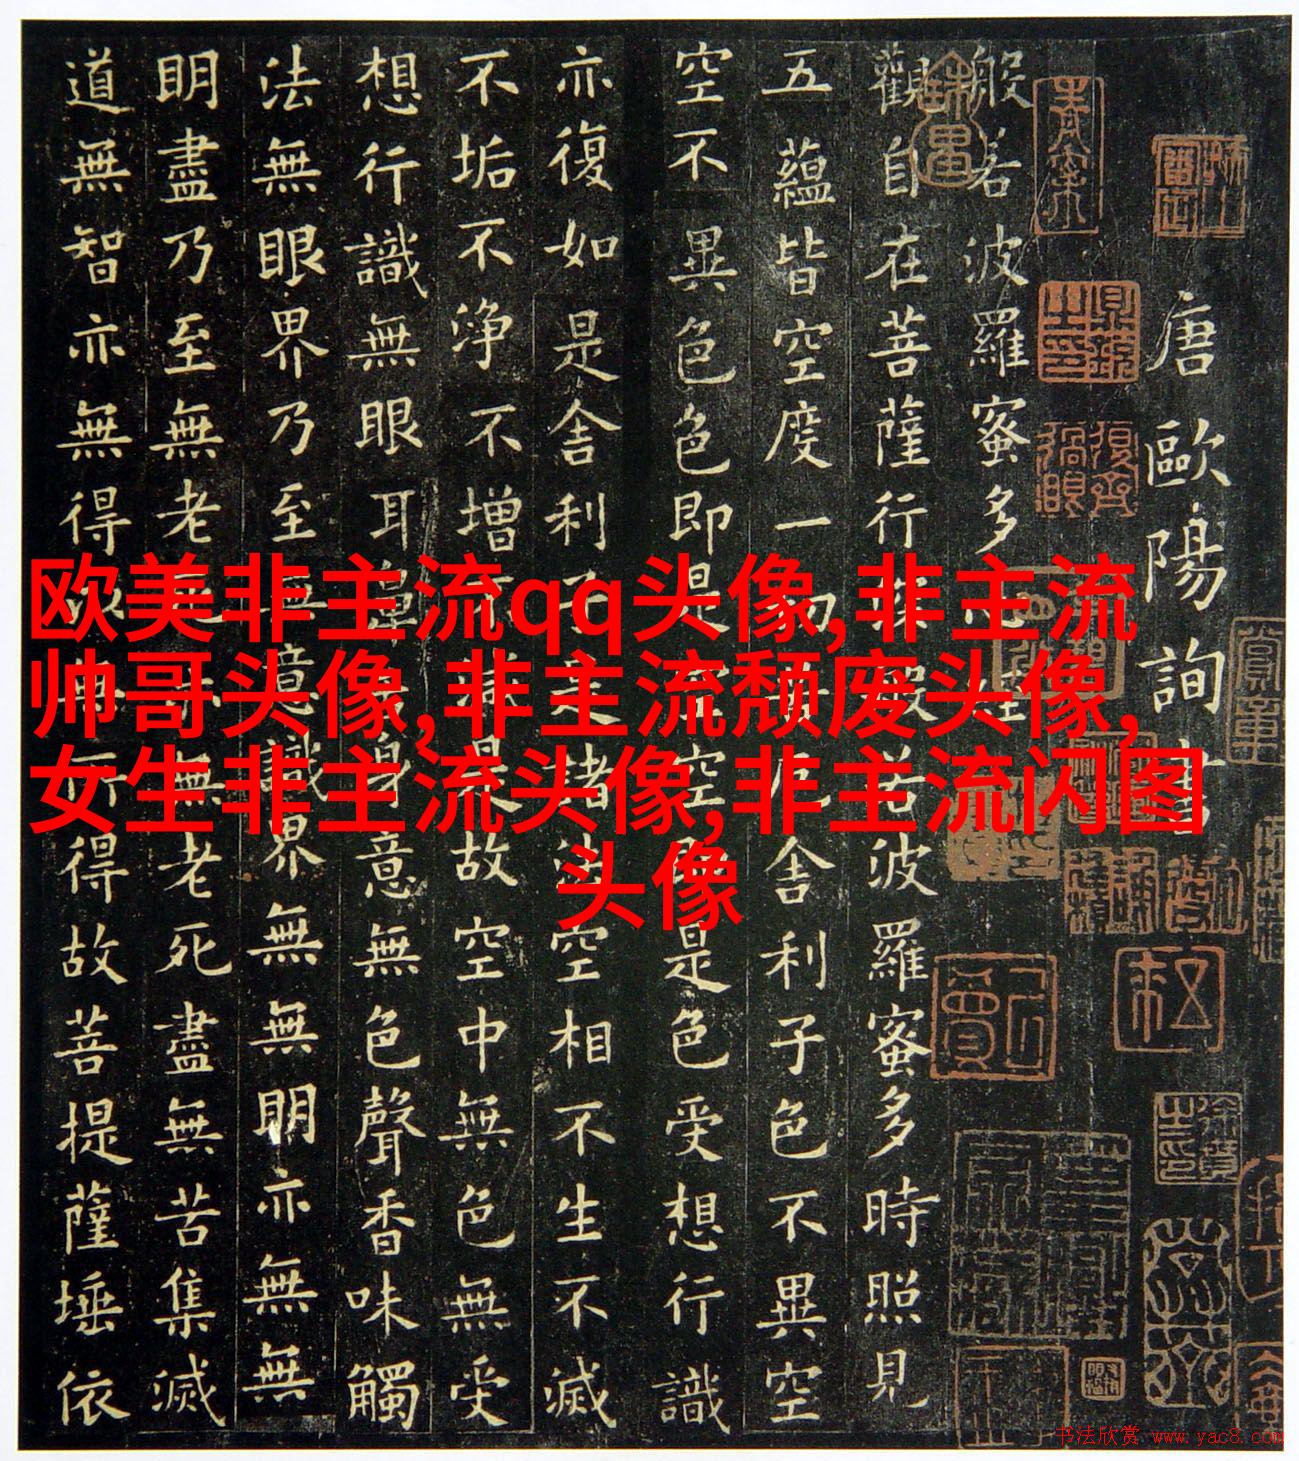 唐歐陽詢書
般若波羅蜜多心經
觀自在菩薩行深般若波羅蜜多時照見
五蘊皆空度一切苦厄舍利子色不異空
空不異色色即是空空即是色受想行識
亦復如是舍利子是諸法空相不生不滅
不垢不淨不增不減是故空中無色無受
想行識無眼耳鼻舌身意無色聲香味觸
法無眼界乃至無意識界無無明亦無無
明盡乃至無老死亦無老死盡無苦集滅
道無智亦無得以無所得故菩提薩埵依
欧美非主流qq头像,非主流
帅哥头像,非主流颓废头像,
女生非主流头像,非主流闪图
头像
书法欣赏 www.yac8.com